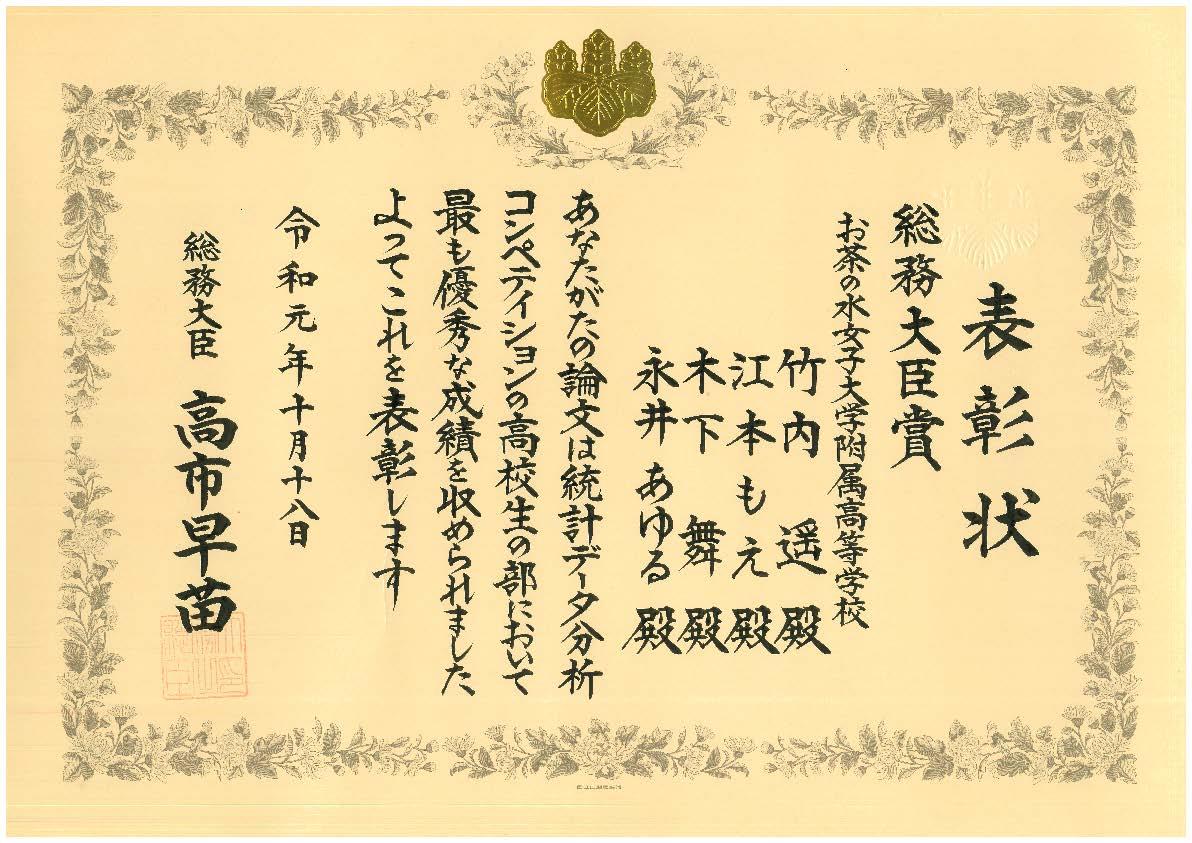 表彰状
総務大臣賞
お茶の水女子大学附属高等学校
竹内 遥 殿
江本もえ 殿
木下 舞 殿
永井あゆる 殿
あなたがたの論文は統計データ分析
コンペティションの高校生の部において
最も優秀な成績を収められました
よってこれを表彰します
令和元年十月十八日
総務大臣 高市早苗